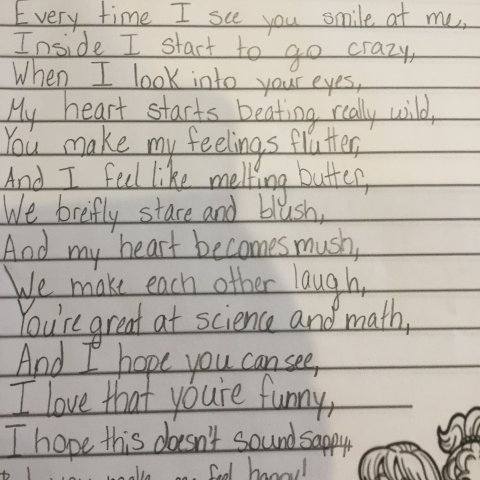 Every time I see you smile at me,
Inside I start to go crazy,
When I look into your eyes,
My heart starts beating really wild,
You make my feelings flutter,
And I feel like melting butter,
We breifly stare and blush,
And my heart becomes mush,
We make each other laugh,
You're great at science and math,
And I hope you can see,
I love that you're funny,
I hope this doesn't sound sappy,
feel happy!